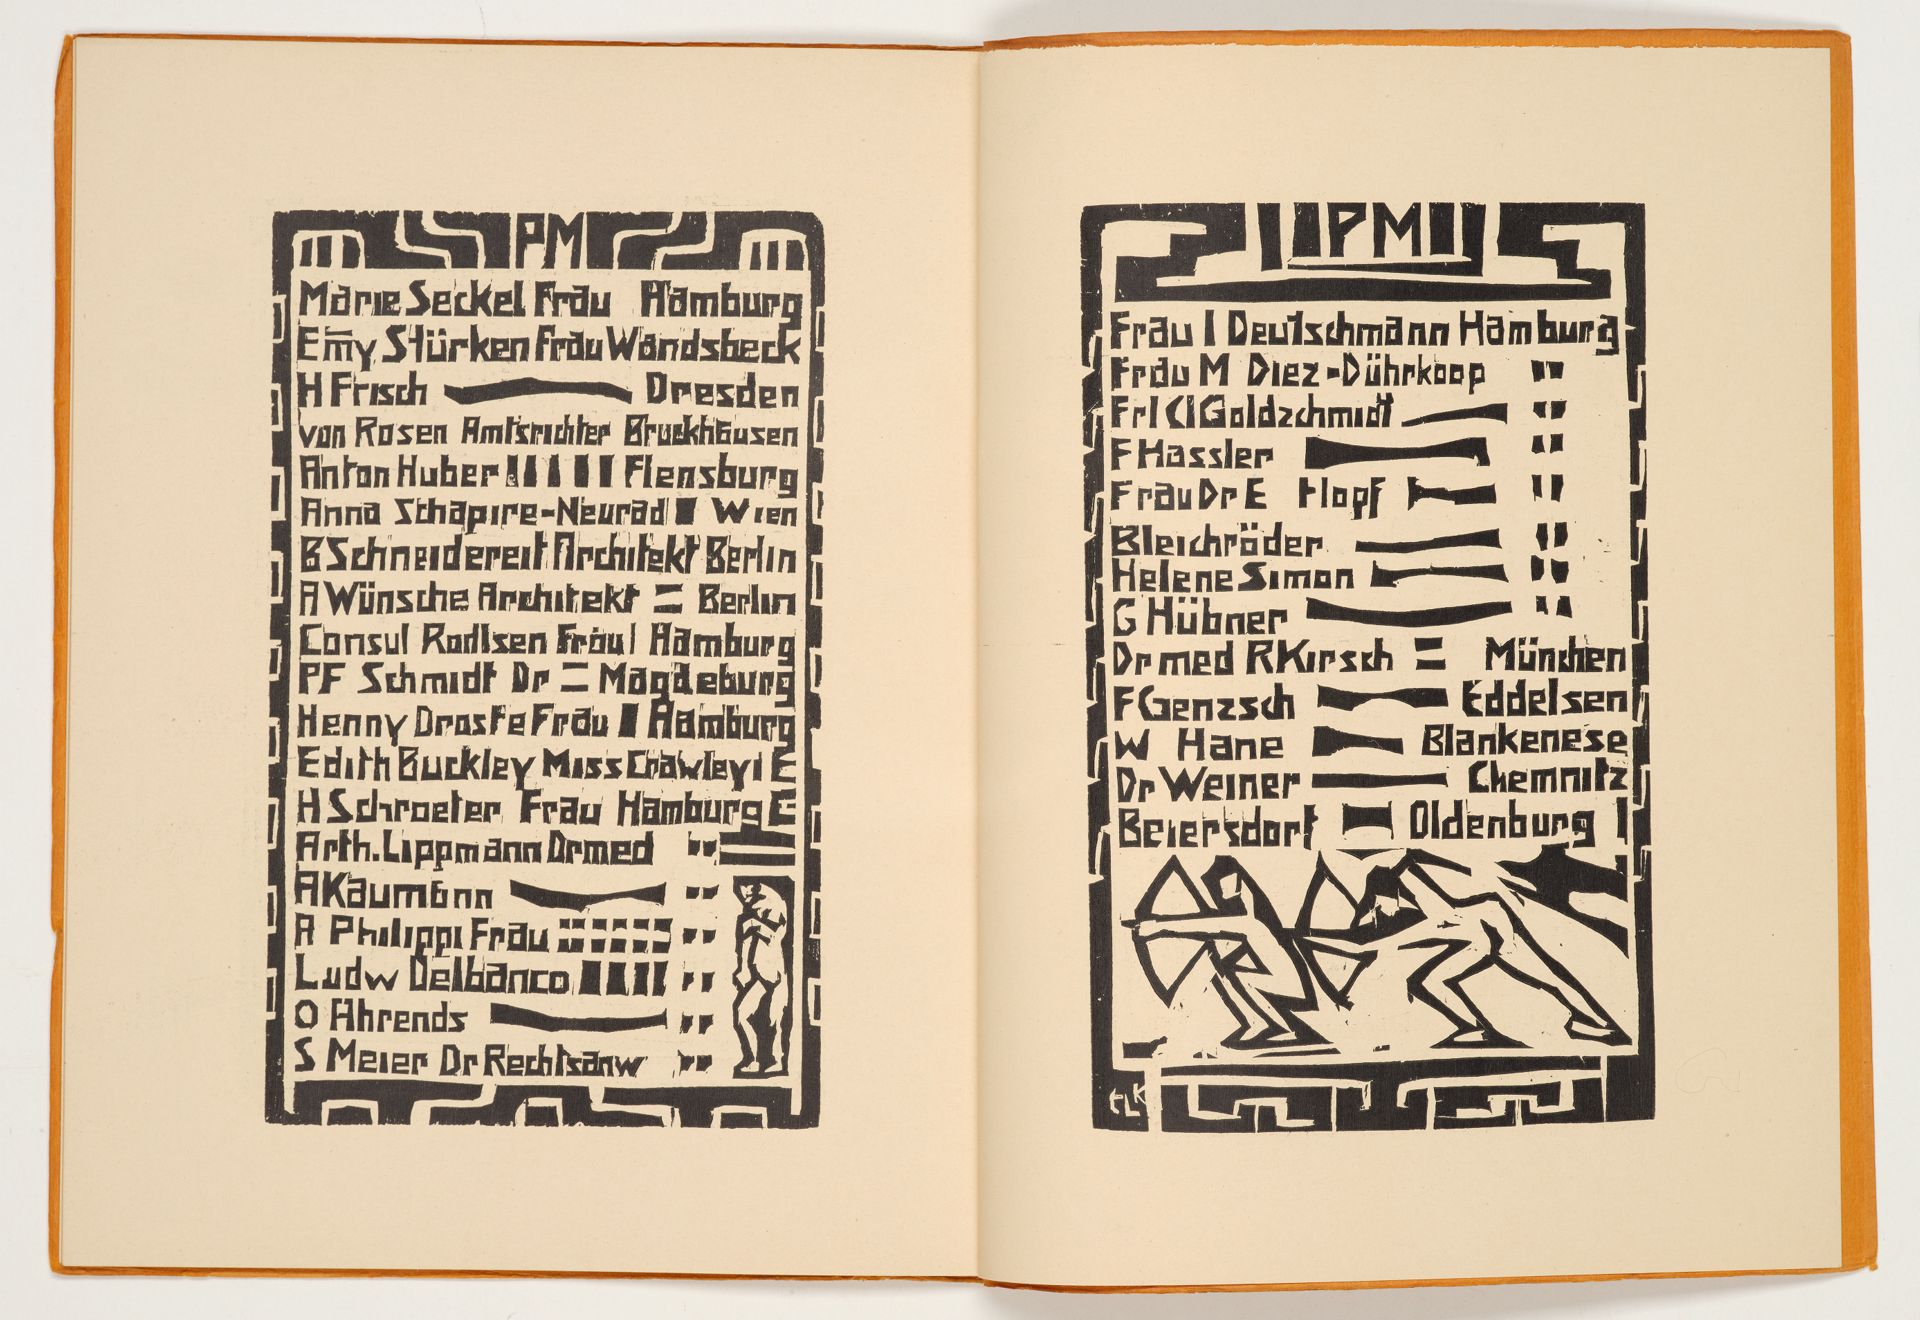 PM
Marie Seckel Frau Hamburg
Em̅y Stürken Frau Wandsbeck
H Frisch Dresden
von Rosen Amtsrichter Bruckhausen
Anton Huber Flensburg
Anna Schapire-Neurad Wien
B Schneidereit Architekt Berlin
A Wünsche Architekt = Berlin
Consul Frau Hamburg
PF Schmidt Dr = Magdeburg
Henny Droste Frau Hamburg
Edith Buckley Miss Crawley E
H Schroeter Frau Hamburg E
Arth. Lippmann Dr med "
A Kaumann "
A Philippi Frau "
Ludw Delbanco "
O Ahrends "
S Meier Dr Rechtsanw "
PM
Frau I Deutschmann Hamburg
Frau M Diez-Dührkoop "
Frl Cl Goldzchmidt "
F Hassler "
Frau Dr E Hopf "
Bleichröder "
Helene Simon "
G Hübner "
Dr med R Kirsch = München
F Genzsch Eddelsen
W Hane Blankenese
Dr Weiner Chemnitz
Beiersdorf Oldenburg I
ELK